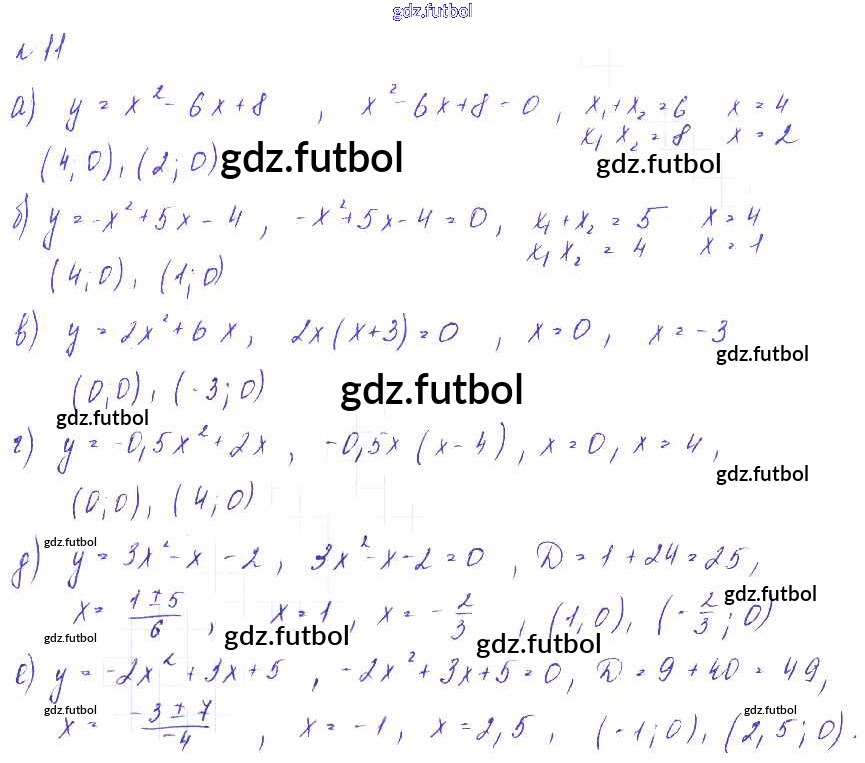 gdz.futbol
№ 11
а) y = x² - 6x + 8 , x² - 6x + 8 = 0 , x₁ + x₂ = 6 x = 4
x₁ x₂ = 8 x = 2
(4; 0), (2; 0) gdz.futbol gdz.futbol
б) y = -x² + 5x - 4 , -x² + 5x - 4 = 0 , x₁ + x₂ = 5 x = 4
x₁ x₂ = 4 x = 1
(4; 0), (1; 0)
в) y = 2x² + 6x, 2x(x+3) = 0 , x = 0 , x = -3
gdz.futbol
(0,0), (-3; 0) gdz.futbol
gdz.futbol
г) y = -0,5x² + 2x , -0,5x (x-4) , x = 0, x = 4 ,
gdz.futbol
(0;0), (4; 0)
gdz.futbol
д) y = 3x² - x - 2 , 3x² - x - 2 = 0 , D = 1 + 24 = 25,
gdz.futbol
x = (1 ± 5)/6 , x = 1 , x = -2/3 , (1,0), (-2/3; 0)
gdz.futbol gdz.futbol gdz.futbol
е) y = -2x² + 3x + 5 , -2x² + 3x + 5 = 0, D = 9 + 40 = 49,
gdz.futbol gdz.futbol
x = (-3 ± 7)/-4 , x = -1 , x = 2,5 , (-1; 0), (2,5; 0).